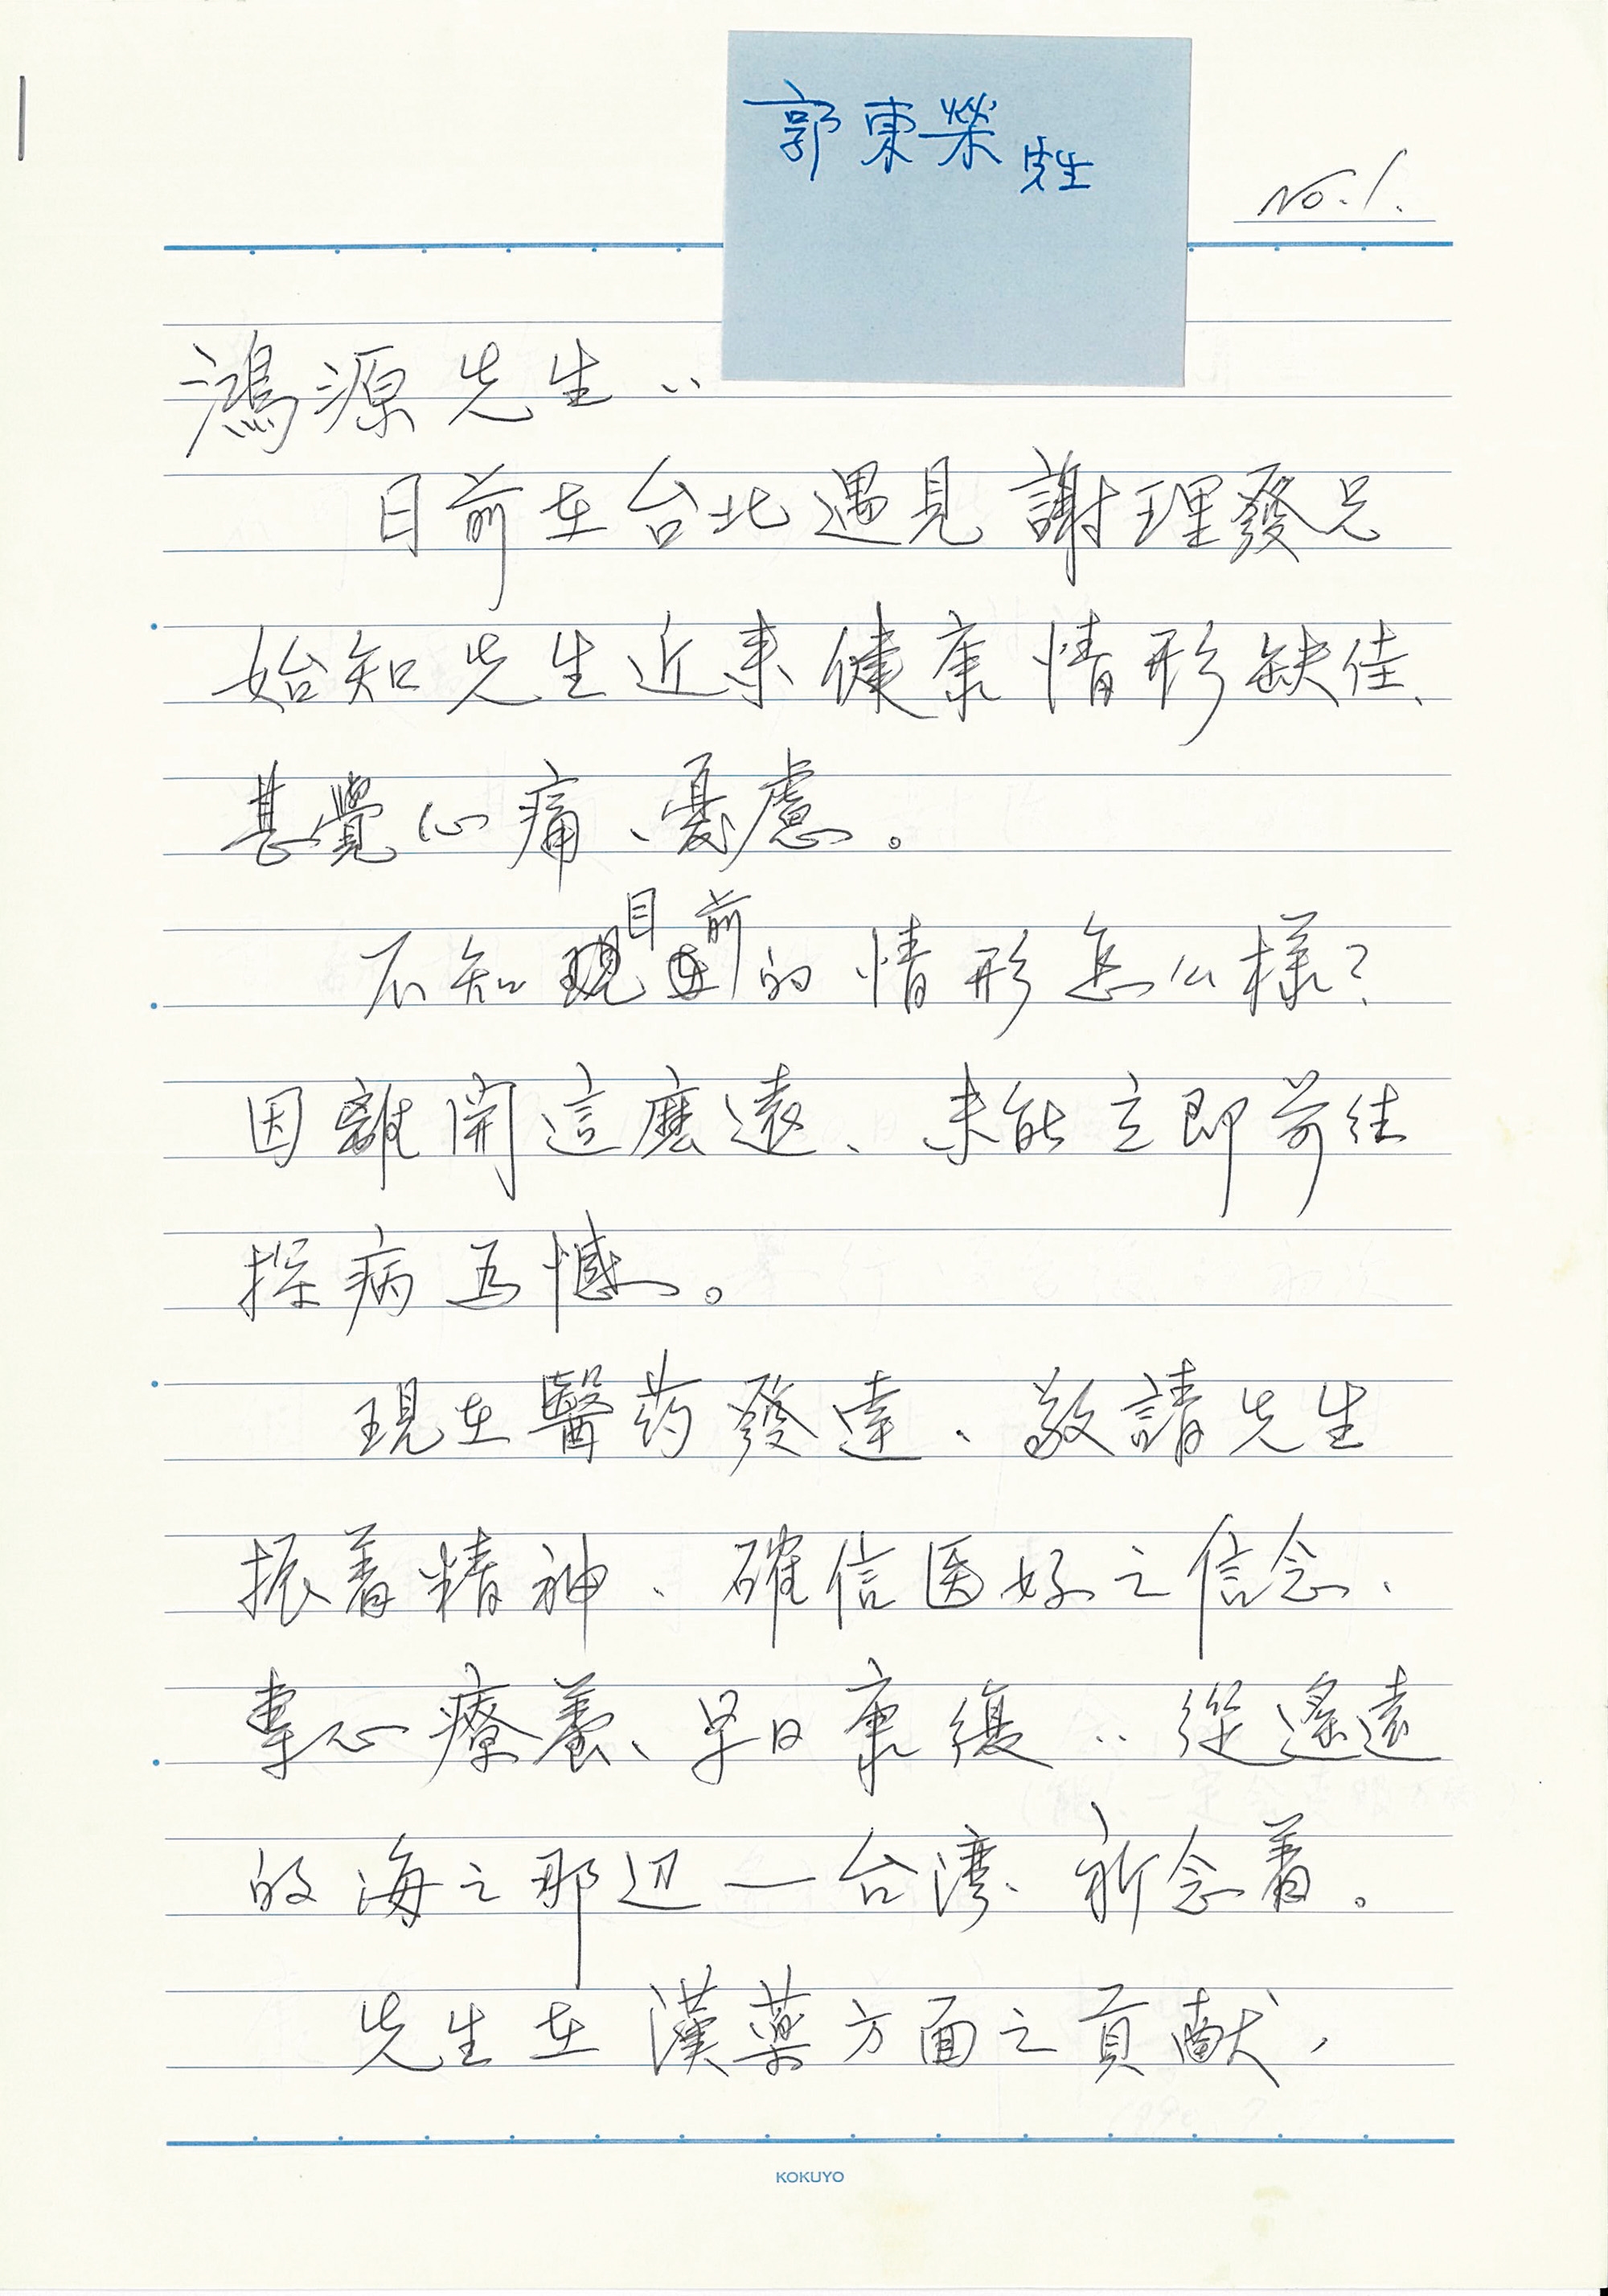 郭東榮先生
No.1.
鴻源先生：
日前在台北遇見謝理發兄
始知先生近来健康情形缺佳、
甚覺心痛、憂慮。
不知目前的情形怎么樣？
因離開這麽遠、未能立即前往
探病為憾。
現在醫药發達、敬請先生
振着精神、確信医好之信念、
専心療養、早日康復‥從遙遠
的海之那辺—台湾、祈念着。
先生在漢薬方面之貢献，
KOKUYO